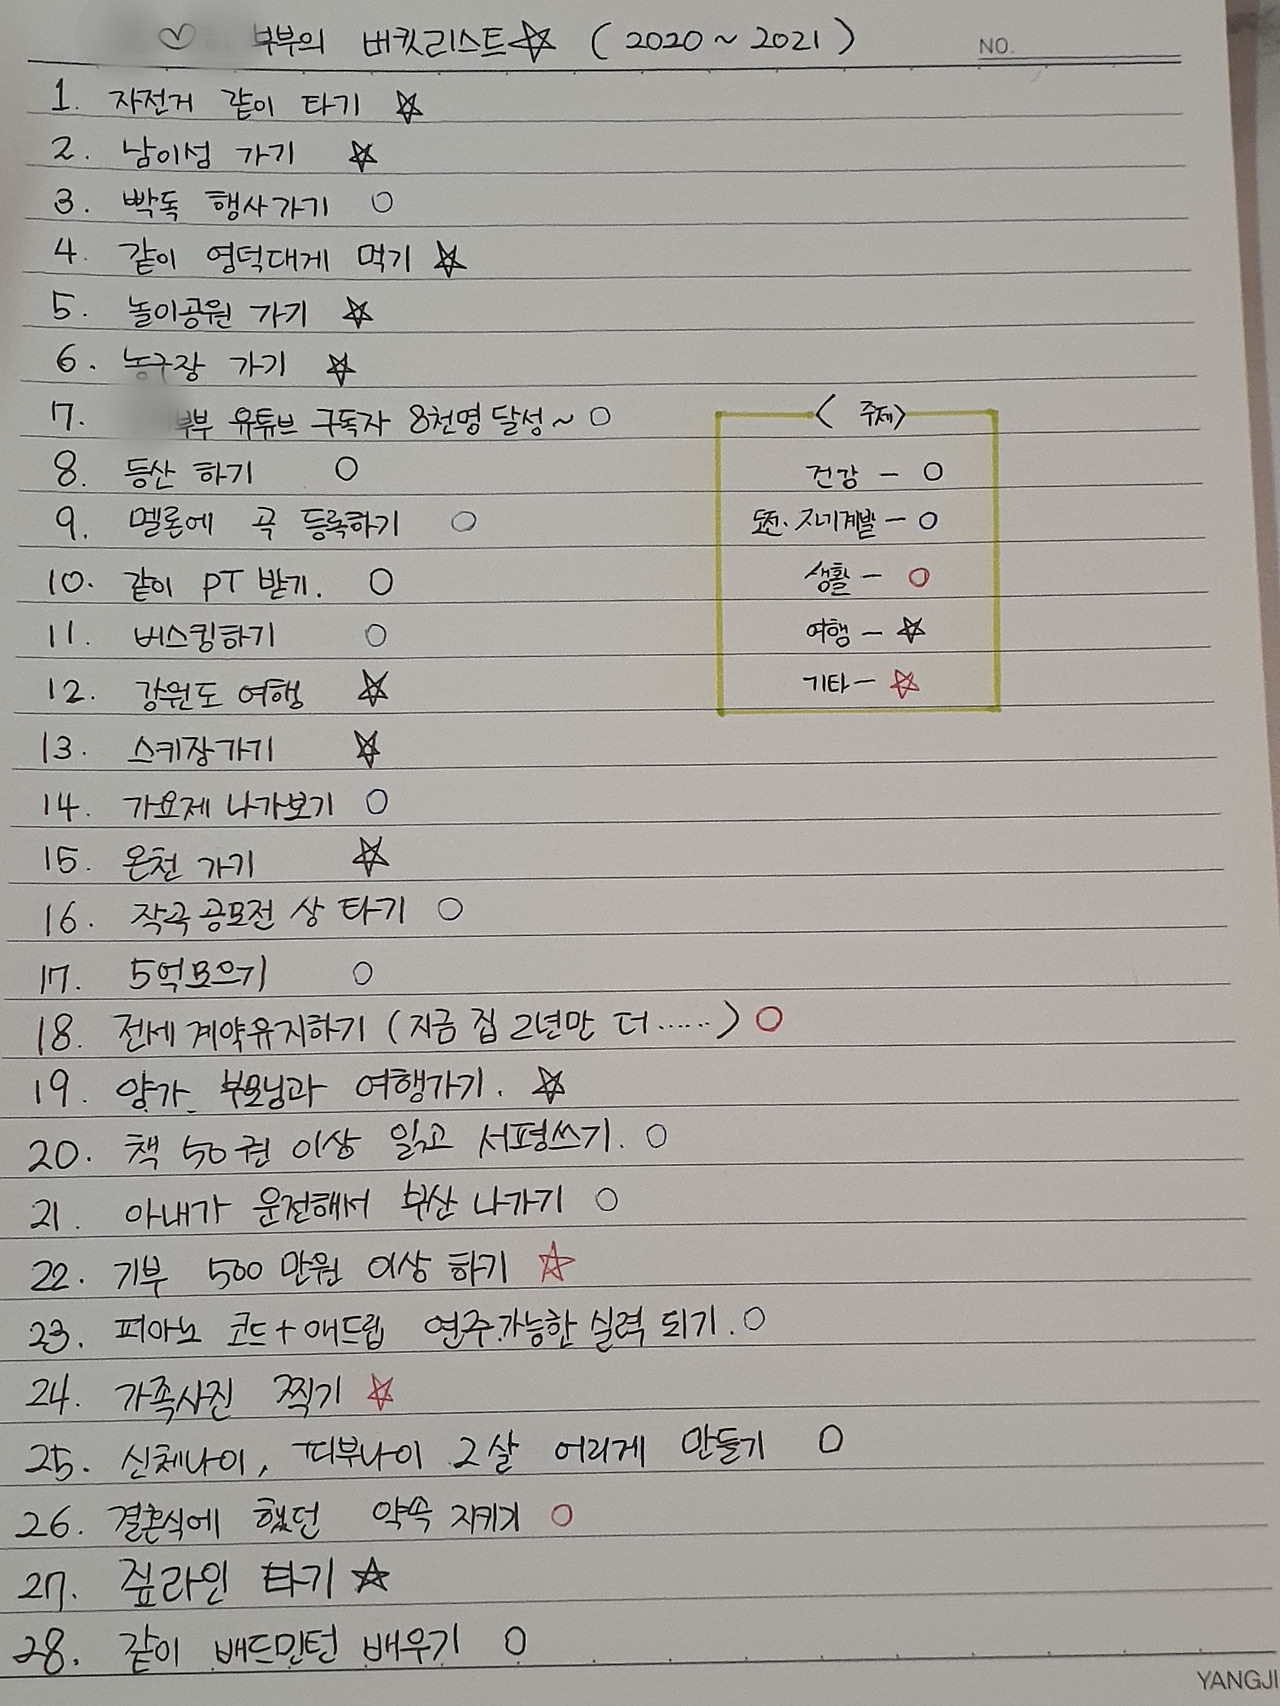 ♡ 부부의 버킷리스트☆ (2020~2021)
NO.
1. 자전거 같이 타기 ☆
2. 남이섬 가기 ☆
3. 빡독 행사가기 ○
4. 같이 영덕대게 먹기 ☆
5. 놀이공원 가기 ☆
6. 농구장 가기 ☆
7. 부부 유튜브 구독자 8천명 달성~ ○
8. 등산 하기 ○
9. 멜론에 곡 등록하기 ○
10. 같이 PT 받기. ○
11. 버스킹하기 ○
12. 강원도 여행 ☆
13. 스키장가기 ☆
14. 가요제 나가보기 ○
15. 온천 가기 ☆
16. 작곡공모전 상 타기 ○
17. 5억모으기 ○
18. 전세계약유지하기 (지금 집 2년만 더......) ○
19. 양가 부모님과 여행가기. ☆
20. 책 50권 이상 읽고 서평쓰기. ○
21. 아내가 운전해서 부산 나가기 ○
22. 기부 500만원 이상 하기 ☆
23. 피아노 코드+애드립 연주가능한 실력 되기. ○
24. 가족사진 찍기 ☆
25. 신체나이, 피부나이 2살 어리게 만들기 ○
26. 결혼식에 했던 약속 지키기 ○
27. 짚라인 타기 ☆
28. 같이 배드민턴 배우기 ○
<주제>
건강 - ○
도전·자기계발 - ○
생활 - ○
여행 - ☆
기타 - ☆
YANGJI